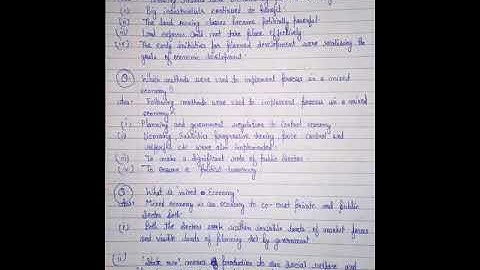 (i) Big industrialists continued to benefit.
(ii) The land owning classes became politically powerful
(iii) Land reforms could not take place effectively
(iv) The early initiatives for planned development were realising the
goals of economic development.
Q. Which methods were used to implement process in a mixed
economy?
Ans: Following methods were used to implement process in a mixed
economy?
(i) Planning and government regulations to control economy
(ii) Licensing, Subsidies progressive taxing price control and
etc were also implemented.
(iii) To make a significant role of public sectors.
(iv) To ensure a
Q. What is 'mixed economy?
Ans: Mixed economy is an economy to co-exist private and public
sector both.
(i) Both the sectors work within invisible hands of market forces
and visible hands of planning by government
(ii) 'State run' means of production to use social welfare and